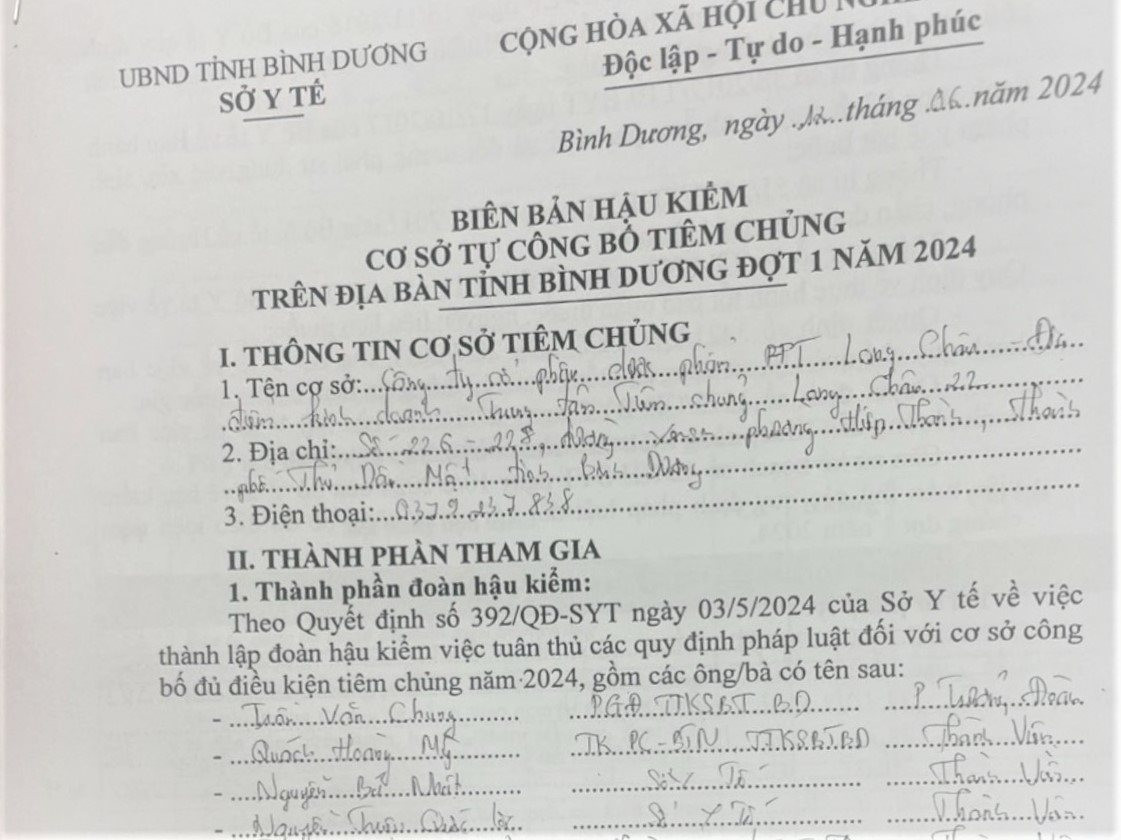 UBND TỈNH BÌNH DƯƠNG
SỞ Y TẾ
CỘNG HÒA XÃ HỘI CHỦ
Độc lập - Tự do - Hạnh phúc
Bình Dương, ngày .12...tháng .06.năm 2024
BIÊN BẢN HẬU KIỂM
CƠ SỞ TỰ CÔNG BỐ TIÊM CHỦNG
TRÊN ĐỊA BÀN TỈNH BÌNH DƯƠNG ĐỢT 1 NĂM 2024
I. THÔNG TIN CƠ SỞ TIÊM CHỦNG
1. Tên cơ sở: Công ty cổ phần dược phẩm FPT Long Châu - Địa
điểm kinh doanh Trung tâm Tiêm chủng Long Châu 22
2. Địa chỉ: Số 226 - 228, đường phường Hiệp Thành, Thành
phố Thủ Dầu Một tỉnh Bình Dương
3. Điện thoại: 0379 237 838
II. THÀNH PHẦN THAM GIA
1. Thành phần đoàn hậu kiểm:
Theo Quyết định số 392/QĐ-SYT ngày 03/5/2024 của Sở Y tế về việc
thành lập đoàn hậu kiểm việc tuân thủ các quy định pháp luật đối với cơ sở công
bố đủ điều kiện tiêm chủng năm 2024, gồm các ông/bà có tên sau:
- Trần Văn Chung PGĐ TTKSBT BD P Trưởng Đoàn
- Quách Hoàng Mỹ TK PC-BTN TTKSBTBD Thành Viên
- Nguyễn Nhất Sở Y Tế Thành Viên
- Nguyễn Sở Y Tế Thành Viên